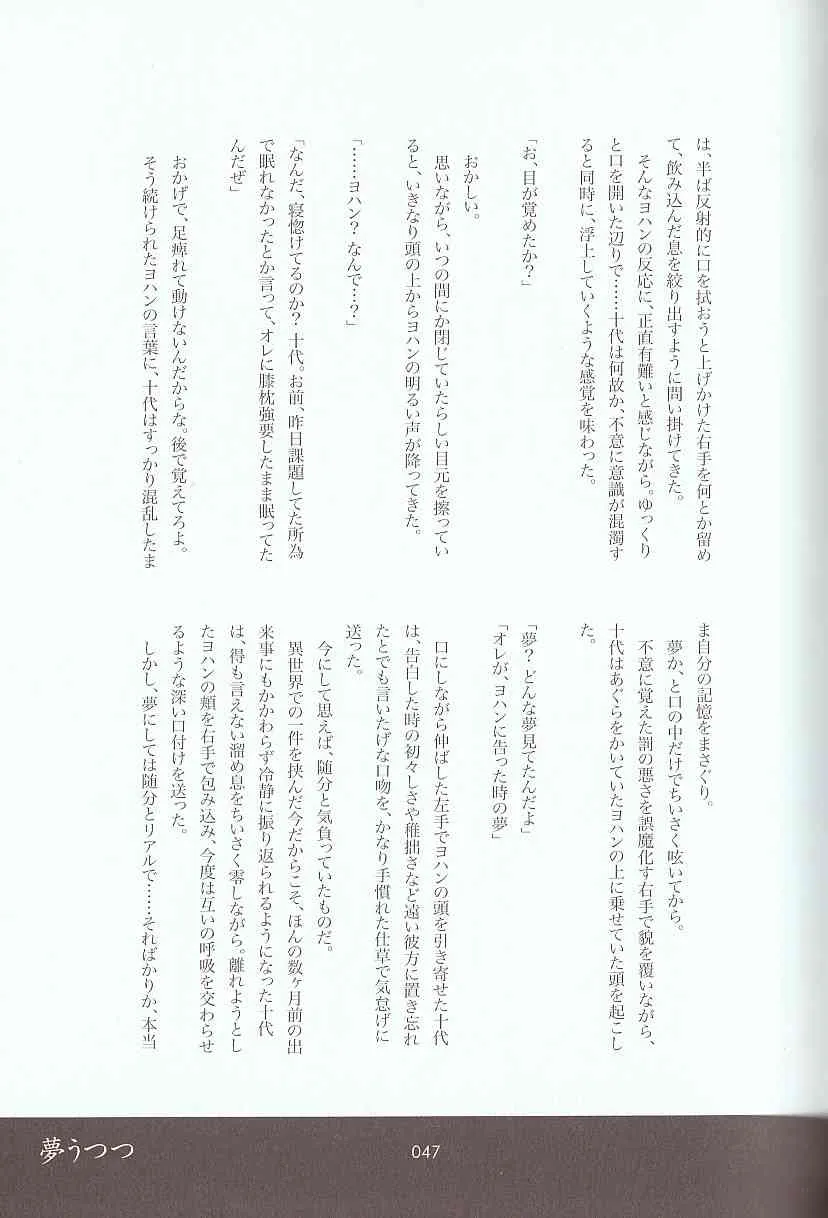 は、半ば反射的に口を拭おうと上げかけた右手を何とか留め
て、飲み込んだ息を絞り出すように問い掛けてきた。
そんなヨハンの反応に、正直有難いと感じながら。ゆっくり
と口を開いた辺りで……十代は何故か、不意に意識が混濁す
ると同時に、浮上していくような感覚を味わった。
「お、目が覚めたか？」
おかしい。
思いながら、いつの間にか閉じていたらしい目元を擦ってい
ると、いきなり頭の上からヨハンの明るい声が降ってきた。
「……ヨハン？ なんで…？」
「なんだ、寝惚けてるのか？ 十代。お前、昨日課題してた所為
で眠れなかったとか言って、オレに膝枕強要したまま眠ってた
んだぜ」
おかげで、足痺れて動けないんだからな。後で覚えてろよ。
そう続けられたヨハンの言葉に、十代はすっかり混乱したま
ま自分の記憶をまさぐり。
夢か、と口の中だけでちいさく呟いてから。
不意に覚えた罰の悪さを誤魔化す右手で貌を覆いながら、
十代はあぐらをかいていたヨハンの上に乗せていた頭を起こし
た。
「夢？ どんな夢見てたんだよ」
「オレが、ヨハンに告った時の夢」
口にしながら伸ばした左手でヨハンの頭を引き寄せた十代
は、告白した時の初々しさや稚拙さなど遠い彼方に置き忘れ
たとでも言いたげな口吻を、かなり手慣れた仕草で気怠げに
送った。
今にして思えば、随分と気負っていたものだ。
異世界での一件を挟んだ今だからこそ、ほんの数ヶ月前の出
来事にもかかわらず冷静に振り返られるようになった十代
は、得も言えない溜め息をちいさく零しながら。離れようとし
たヨハンの頬を右手で包み込み、今度は互いの呼吸を交わらせ
るような深い口付けを送った。
しかし、夢にしては随分とリアルで……そればかりか、本当
夢うつつ
047